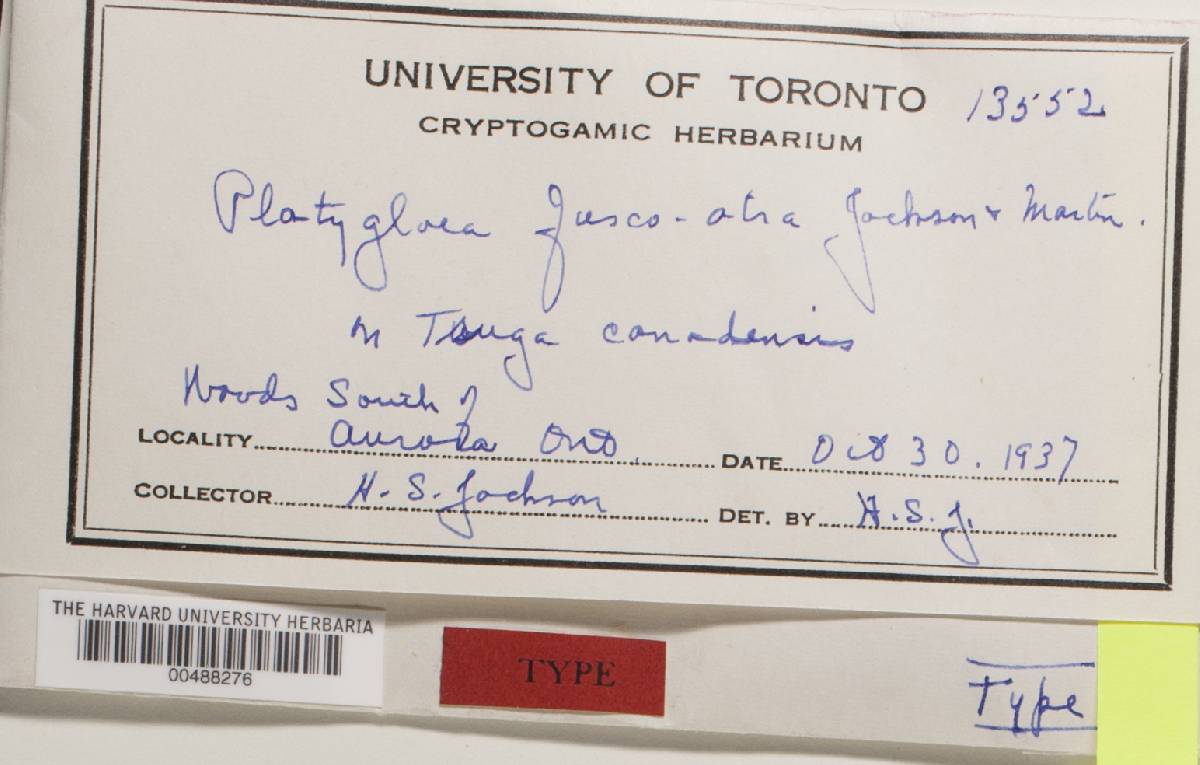 UNIVERSITY OF TORONTO 13552
CRYPTOGAMIC HERBARIUM
Platygloea fusco-atra Jackson & Martin.
on Tsuga canadensis
Woods South of
LOCALITY Aurora Ont. DATE Oct 30. 1937
COLLECTOR H. S. Jackson DET. BY H.S.J.
THE HARVARD UNIVERSITY HERBARIA
00488276
TYPE
Type